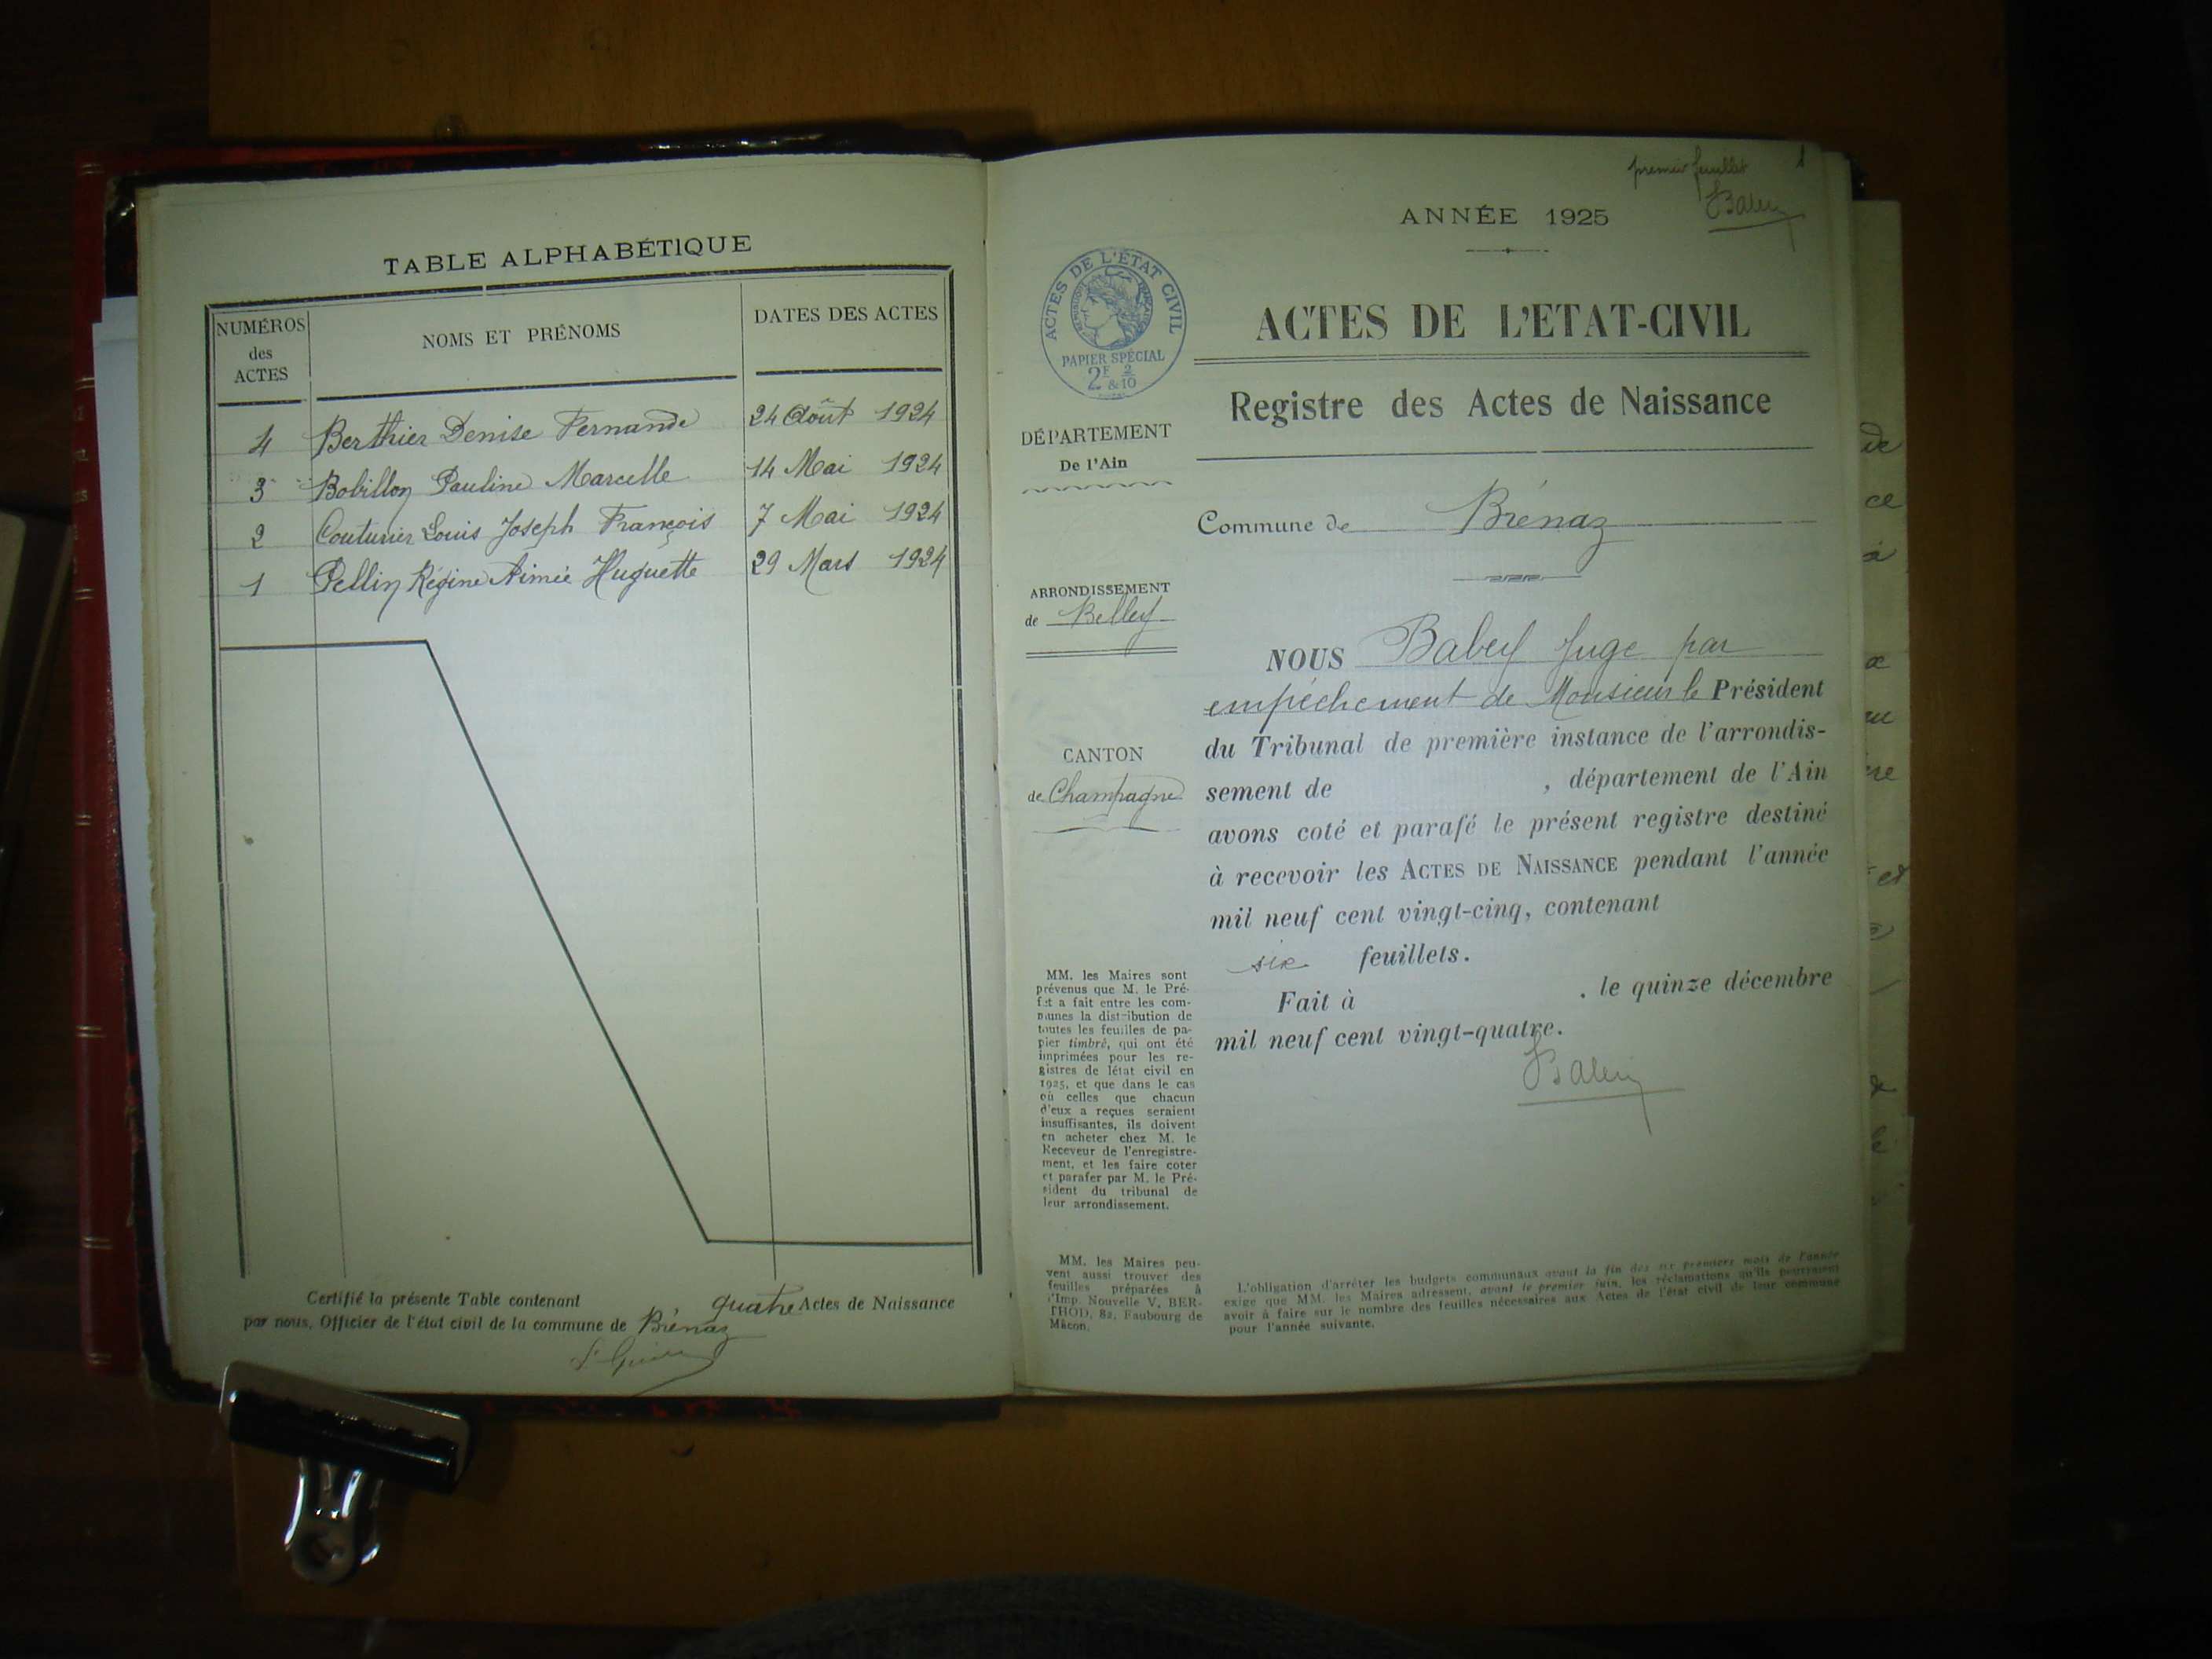 TABLE ALPHABÉTIQUE
NUMÉROS
des
ACTES
NOMS ET PRÉNOMS
DATES DES ACTES
4 Berthier Denise Fernande 24 Août 1924
3 Bobillon Pauline Marcelle 14 Mai 1924
2 Couturier Louis Joseph François 7 Mai 1924
1 Pellin Régine Aimée Huguette 29 Mars 1924
Certifié la présente Table contenant quatre Actes de Naissance
par nous, Officier de l'état civil de la commune de Brénaz
premier feuillet 1
ANNÉE 1925
ACTES DE L'ÉTAT CIVIL
PAPIER SPÉCIAL
2F 2
&10
ACTES DE L'ETAT-CIVIL
Registre des Actes de Naissance
DÉPARTEMENT
De l'Ain
Commune de Brénaz
ARRONDISSEMENT
de Belley
CANTON
de Champagne
NOUS Babey Juge par
empêchement de Monsieur le Président
du Tribunal de première instance de l'arrondis-
sement de , département de l'Ain
avons coté et parafé le présent registre destiné
à recevoir les ACTES DE NAISSANCE pendant l'année
mil neuf cent vingt-cinq, contenant
six feuillets.
Fait à , le quinze décembre
mil neuf cent vingt-quatre.
MM. les Maires sont
prévenus que M. le Pré-
fet a fait entre les com-
munes la distribution de
toutes les feuilles de pa-
pier timbré, qui ont été
imprimées pour les re-
gistres de létat civil en
1925, et que dans le cas
où celles que chacun
d'eux a reçues seraient
insuffisantes, ils doivent
en acheter chez M. le
Receveur de l'enregistre-
ment, et les faire coter
et parafer par M. le Pré-
sident du tribunal de
leur arrondissement.
MM. les Maires peu-
vent aussi trouver des
feuilles préparées à
l'Imp. Nouvelle V. BER-
THOD, 82, Faubourg de
Mâcon.
L'obligation d'arrêter les budgets communaux avant la fin des six premiers mois de l'année
exige que MM. les Maires adressent, avant le premier juin, les réclamations qu'ils pourraient
avoir à faire sur le nombre des feuilles nécessaires aux Actes de l'état civil de leur commune
pour l'année suivante.